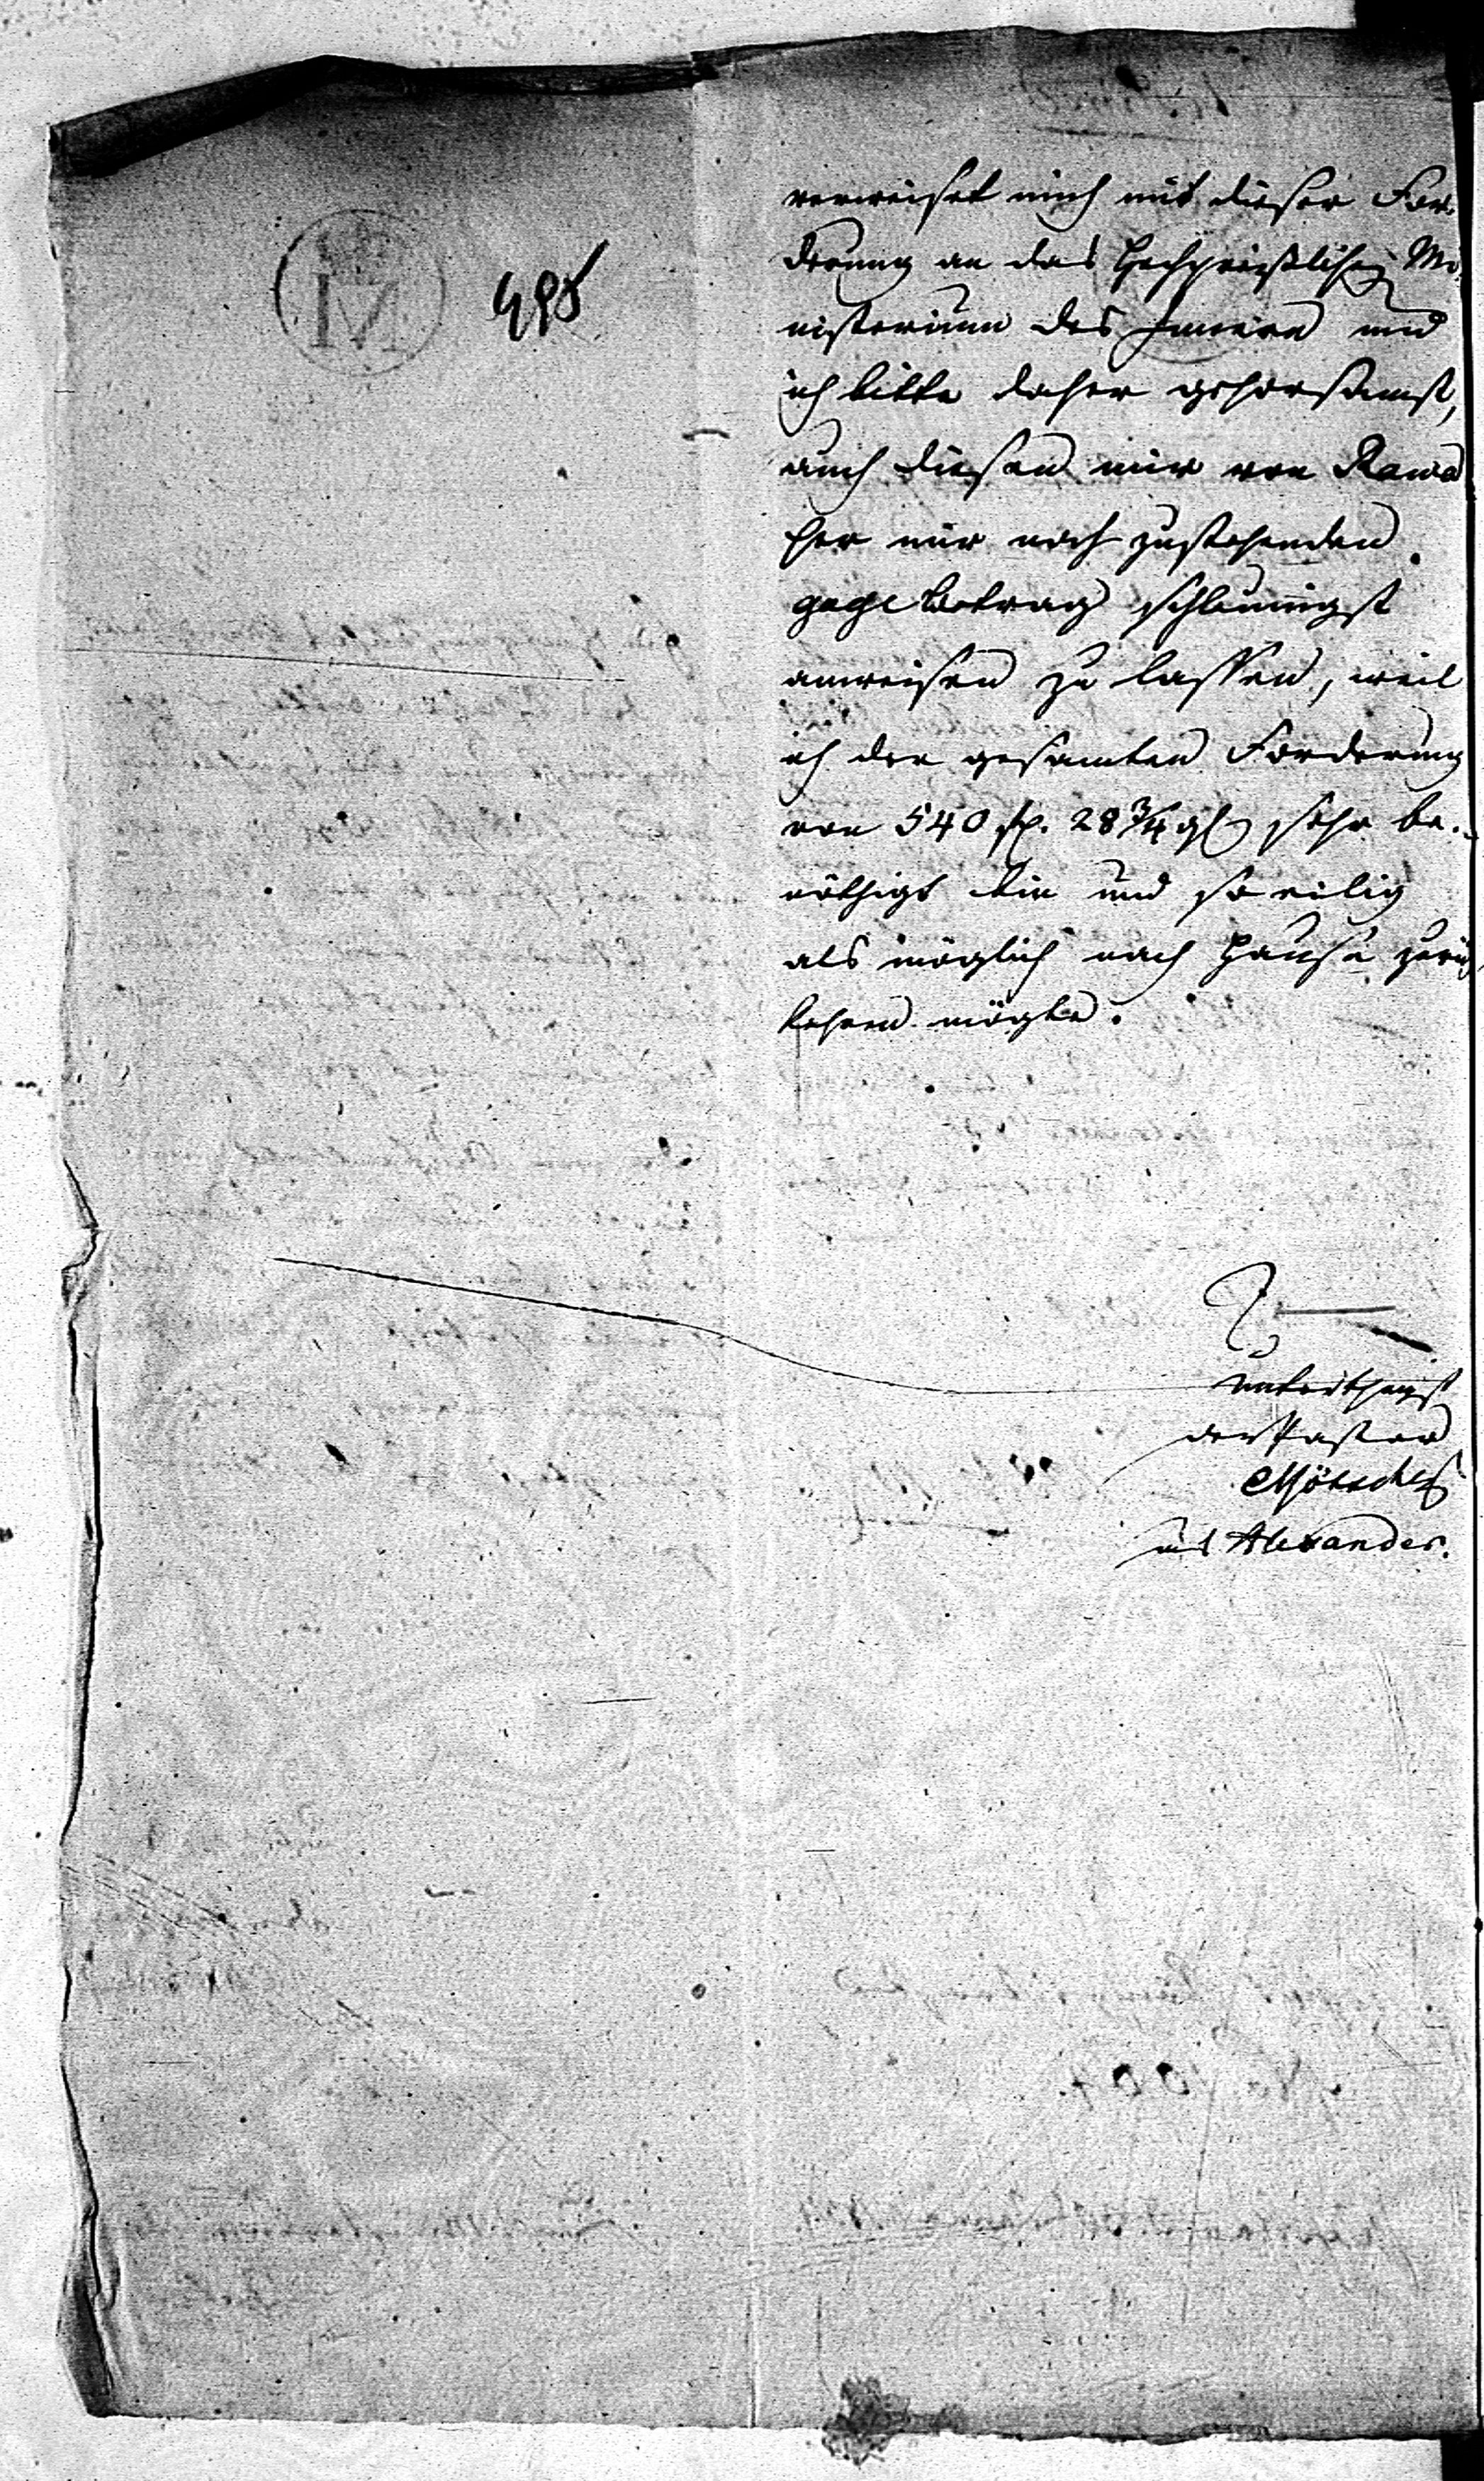 495
verweiset mich mit dieser For-
derung an das Hochpreißliche Mi-
nisterium des Innern und
ich bitte daher gehorsamst,
auch diesen mir von Rawa
her nur noch zustehenden
gage Betrag schleunigst
anweisen zu lassen, weil
ich der gesamten Forderung
von 540 fl. 28 3/4 gl sehr be-
nöthigt bin und so eilig
als möglich nach Hause zurük
kehren mögte.
unterthänigst
der Pastor
aus Alexander.